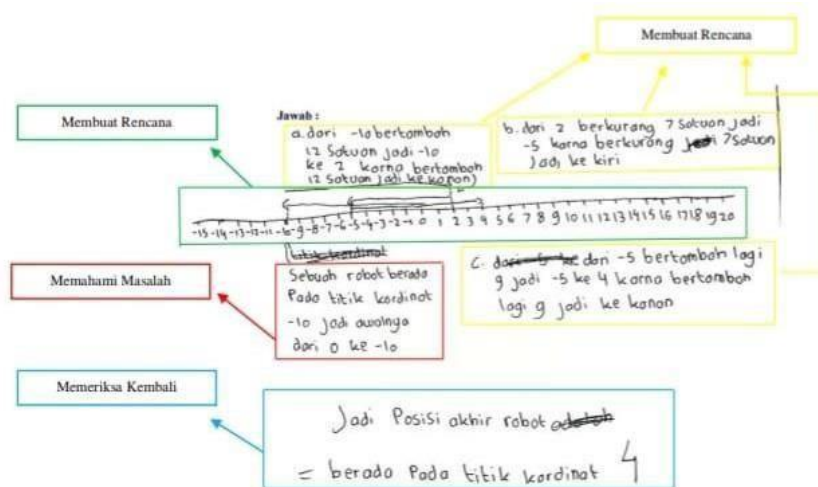 Membuat Rencana
Membuat Rencana
Jawab :
a. dari -10 bertambah
12 Satuan jadi -10
ke 2 karna bertambah
12 Satuan jadi ke kanan)
b. dari 2 berkurang 7 Satuan jadi
-5 karna berkurang 7 Satuan
Jadi ke kiri
-15 -14 -13 -12 -11 -10 -9 -8 -7 -6 -5 -4 -3 -2 -1 0 1 2 3 4 5 6 7 8 9 10 11 12 13 14 15 16 17 18 19 20
titik kordinat
Memahami Masalah
Sebuah robot berada
Pada titik kordinat
-10 jadi awalnya
dari 0 ke -10
C. dari -5 bertambah lagi
9 jadi -5 ke 4 karna bertambah
lagi 9 jadi ke kanan
Memeriksa Kembali
Jadi Posisi akhir robot
= berada Pada titik kordinat 4